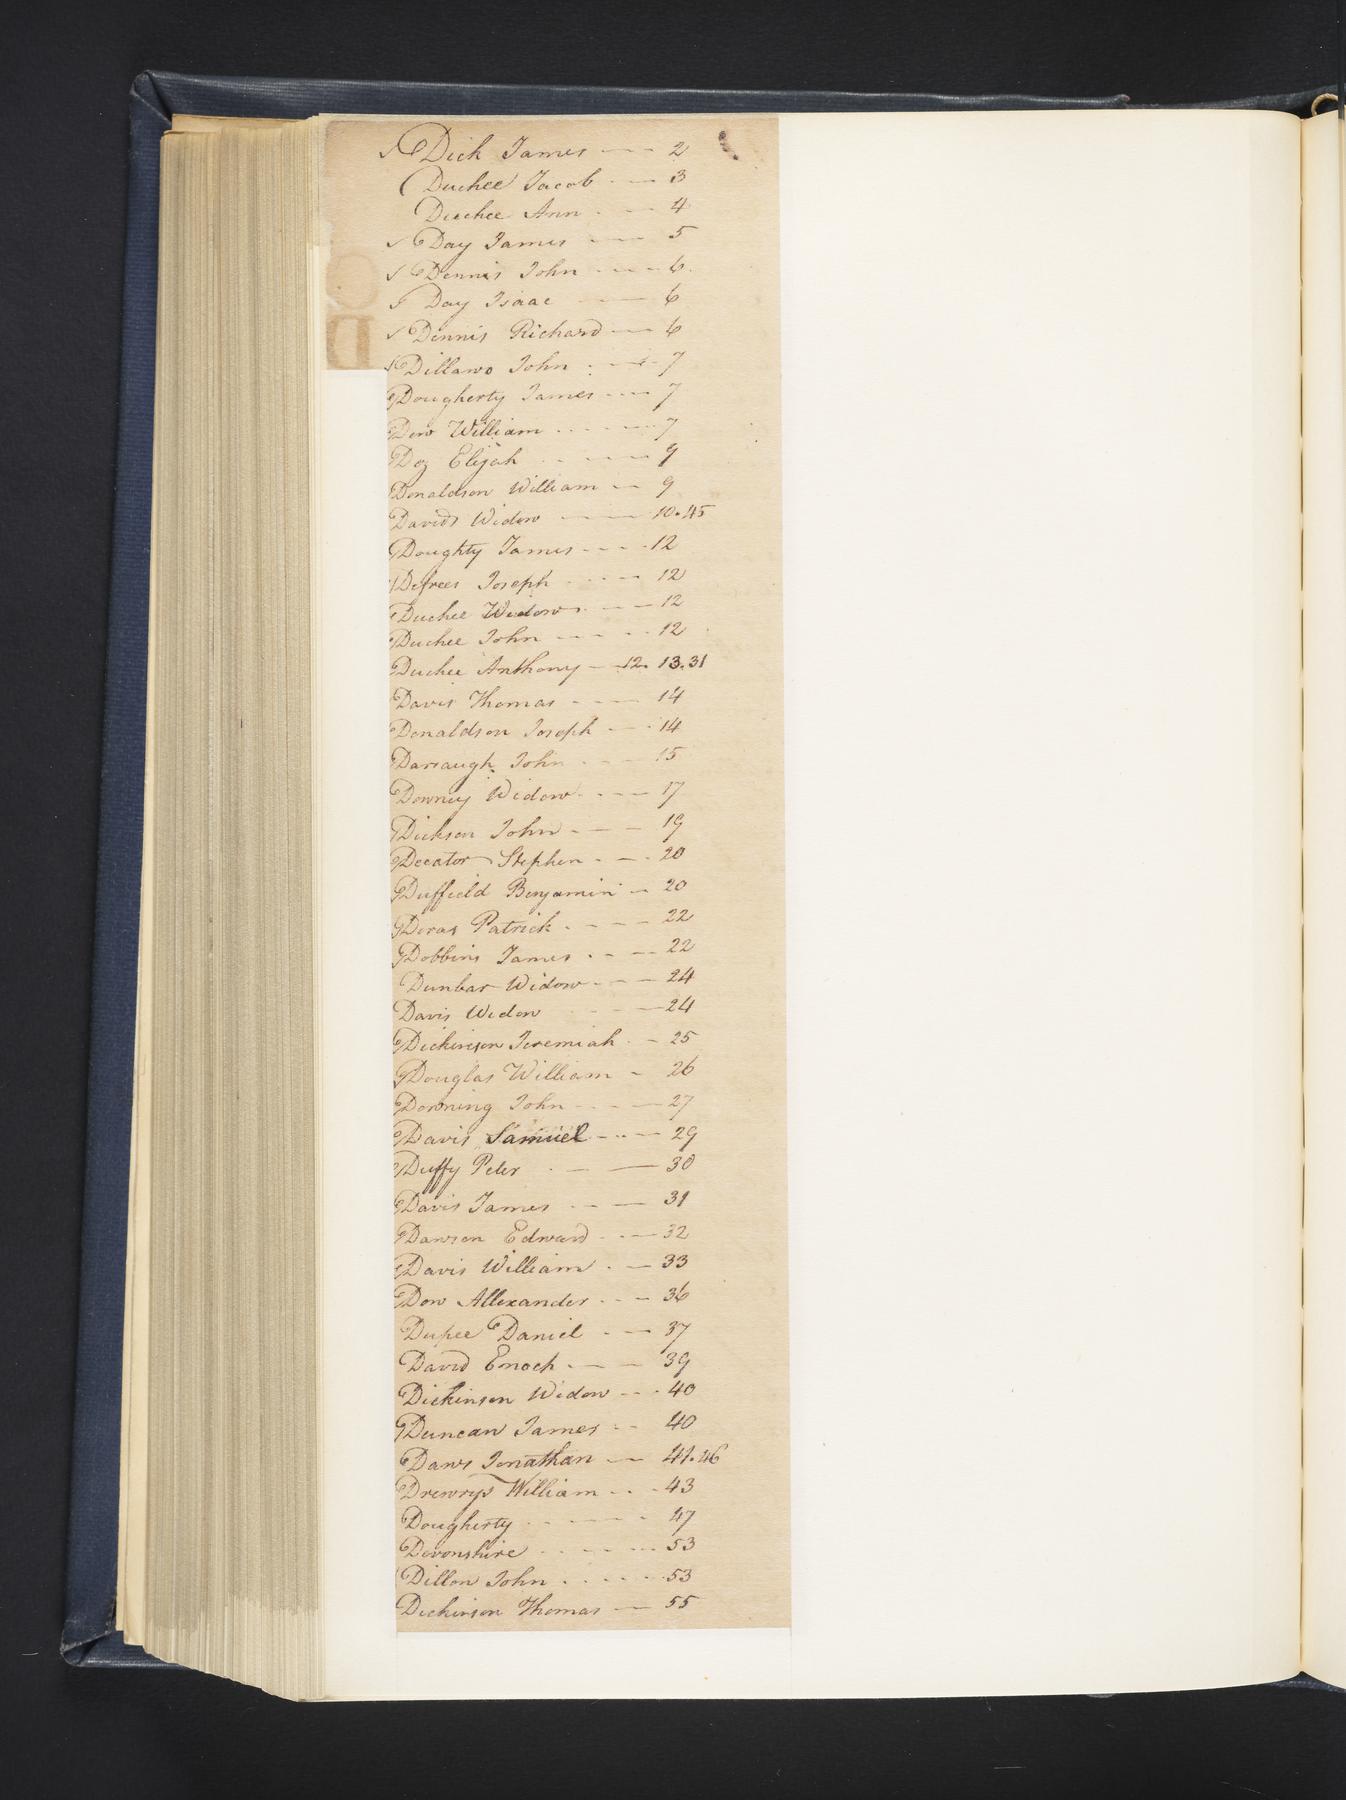 Dick James 2
Duchee Jacob 3
Duchee Ann 4
Day James 5
Dennis John 6
Day Isaac 6
Dennis Richard 6
Dillawo John 7
Dougherty James 7
Dow William 7
Doz Elijah 9
Donaldson William 9
Davids Widow 10.45
Doughty James 12
Defrees Joseph 12
Duchee Widow 12
Duchee John 12
Duchee Anthony 12. 13.31
Davis Thomas 14
Donaldson Joseph 14
Darraugh John 15
Downey Widow 17
Dickson John 19
Decator Stephen 20
Duffield Benjamin 20
Patrick 22
Dobbins James 22
Dunbar Widow 24
Davis Widow 24
Dickinson Jeremiah 25
Douglas William 26
Downing John 27
Davis Samuel 29
Duffy Peter 30
Davis James 31
Dawson Edward 32
Davis William 33
Dow Allexander 36
Dupee Daniel 37
David Enoch 39
Dickinson Widow 40
Duncan James 40
Daws Jonathan 41.46
Drewrys William 43
Dougherty 47
Devonshire 53
Dillon John 53
Dickinson Thomas 55
D